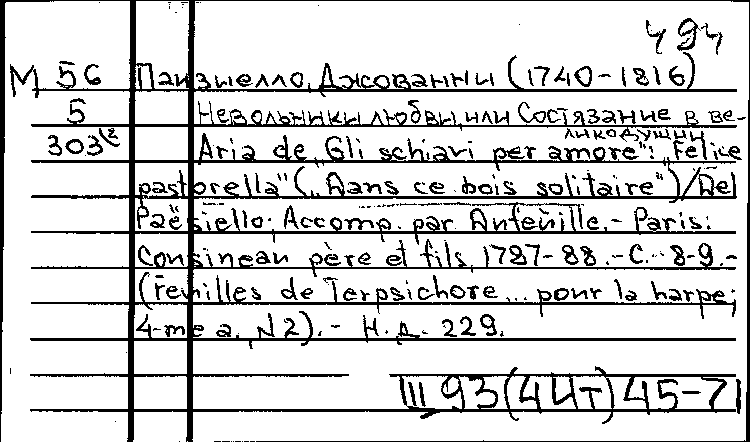 494
М 56 Паизиелло, Джованни (1740-1816)
5 Невольники любви, или Состязание в ве-
ликодушии
303/2 Aria de „Gli schiavi per amore": „Felice
pastorella" („Dans ce bois solitaire")/Del
Paësiello; Accomp. par Anfenille. - Paris:
Consinean père et fils, 1787-88. - С. 8-9. -
(Fenilles de Terpsichore... ponr la harpe;
4-me a., N 2). - Н.д. 229.
III 93(44т)45-71